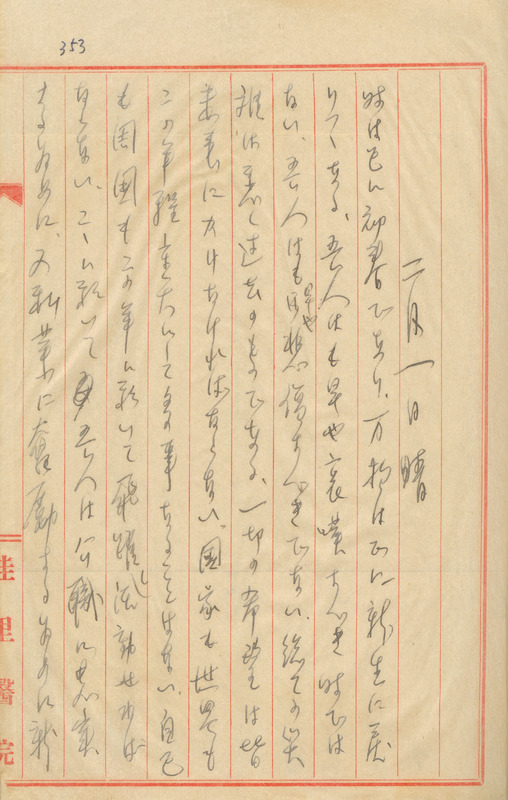 353
二月一日 晴
時は已に初春であり、万物は正に新生に甦
りつゝある、吾人はも早や哀嘆すべき時では
ない、吾人はも早や悲傷すべきでない、総ての災
難は悉く過去のものである、一切の希望は皆
未来にかけなければならない、国家も世界も
この年程重大にして多事なることはない、自己
も周囲もこの年に於いて飛躍し活動せねば
ならない、こゝに於いて吾人は公職に忠実
するために、又新業に奮励するために新
桂里醫院